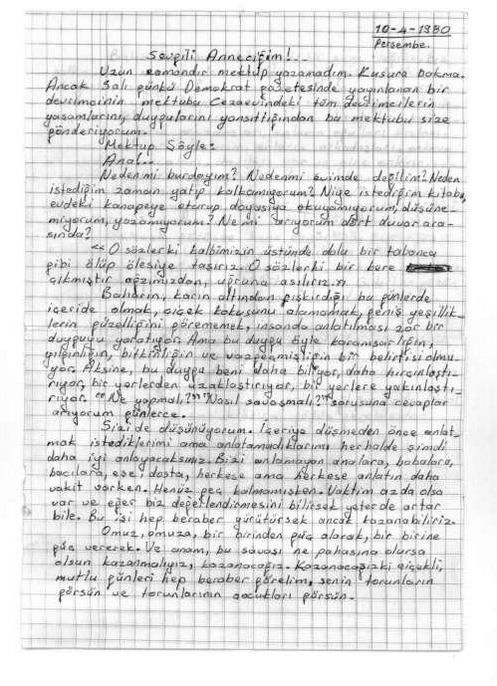 10-4-1980
Perşembe.
Sevgili Anneciğim!..
Uzun zamandır mektup yazamadım. Kusura bakma.
Ancak Salı günkü Demokrat gazetesinde yayınlanan bir
devrimcinin mektubu Cezaevindeki tüm devrimcilerin
yaşamlarını, duygularını yansıttığından bu mektubu size
gönderiyorum.
Mektup Şöyle:
Ana!..
Neden mi burdayım? Neden mi evimde değilim? Neden
istediğim zaman yatıp kalkamıyorum? Niye istediğim kitabı,
evdeki kanapeye oturup doyasıya okuyamıyorum, düşüne-
miyorum, yazamıyorum? Ne mi arıyorum dört duvar ara-
sında?
"O sözlerki kalbimizin üstünde dolu bir tabanca
gibi ölüp ölesiye taşırız. O sözlerki bir kere
çıkmıştır ağzımızdan, uğruna asılırız."
Baharın, karın altından fışkırdığı bu günlerde
içeride olmak, çiçek kokusunu alamamak, geniş yeşillik-
lerin güzelliğini görememek, insanda anlatılması zor bir
duyguyu yaratıyor. Ama bu duygu öyle karamsarlığın,
yılgınlığın, bitkinliğin ve vazgeçmişliğin bir belirtisi olmu-
yor. Aksine, bu duygu beni daha biliyor, daha hırçınlaştı-
rıyor, bir yerlerden uzaklaştırıyor, bir yerlere yakınlaştı-
rıyor. "Ne yapmalı?" "Nasıl savaşmalı?" sorusuna cevaplar
arıyorum günlerce.
Sizi de düşünüyorum. İçeriye düşmeden önce anlat-
mak istediklerimi ama anlatamadıklarımı herhalde şimdi
daha iyi anlayacaksınız. Bizi anlamayan analara, babalara,
bacılara, eşe, dosta, herkese ama herkese anlatın daha
vakit varken. Henüz geç kalmamışken. Vaktim azda olsa
var ve eğer biz değerlendirmesini bilirsek yeterde artar
bile. Bu işi hep beraber yürütürsek ancak kazanabiliriz.
Omuz, omuza, bir birinden güç alarak, bir birine
güç vererek. Ve anam, bu savaşı ne pahasına olursa
olsun kazanmalıyız, kazanacağız. Kazanacağızki çiçekli,
mutlu günleri hep beraber görelim, senin torunların
görsün ve torunlarının çocukları görsün.